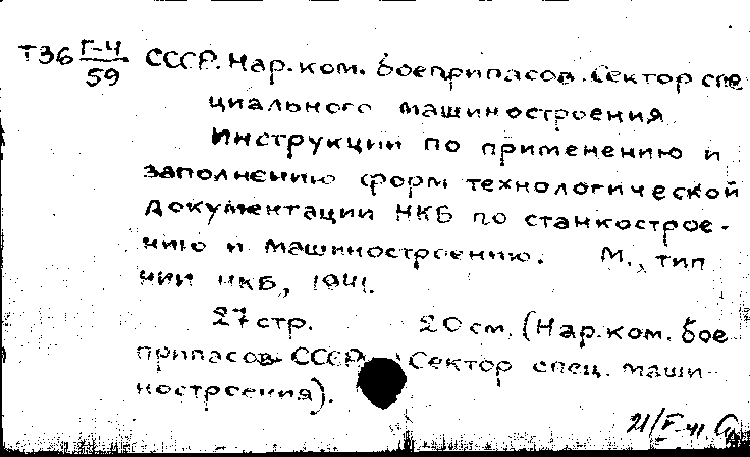 Т36 Г-4/59 СССР. Нар. ком. боеприпасов. Сектор спе
циального машиностроения
Инструкции по применению и
заполнению форм технологической
документации НКБ по станкострое-
нию и машиностроению. М., тип
НИИ НКБ, 1941.
27 стр. 20 см. (Нар. ком. бое
припасов СССР. Сектор спец. маши-
ностроения).
21/V-41.